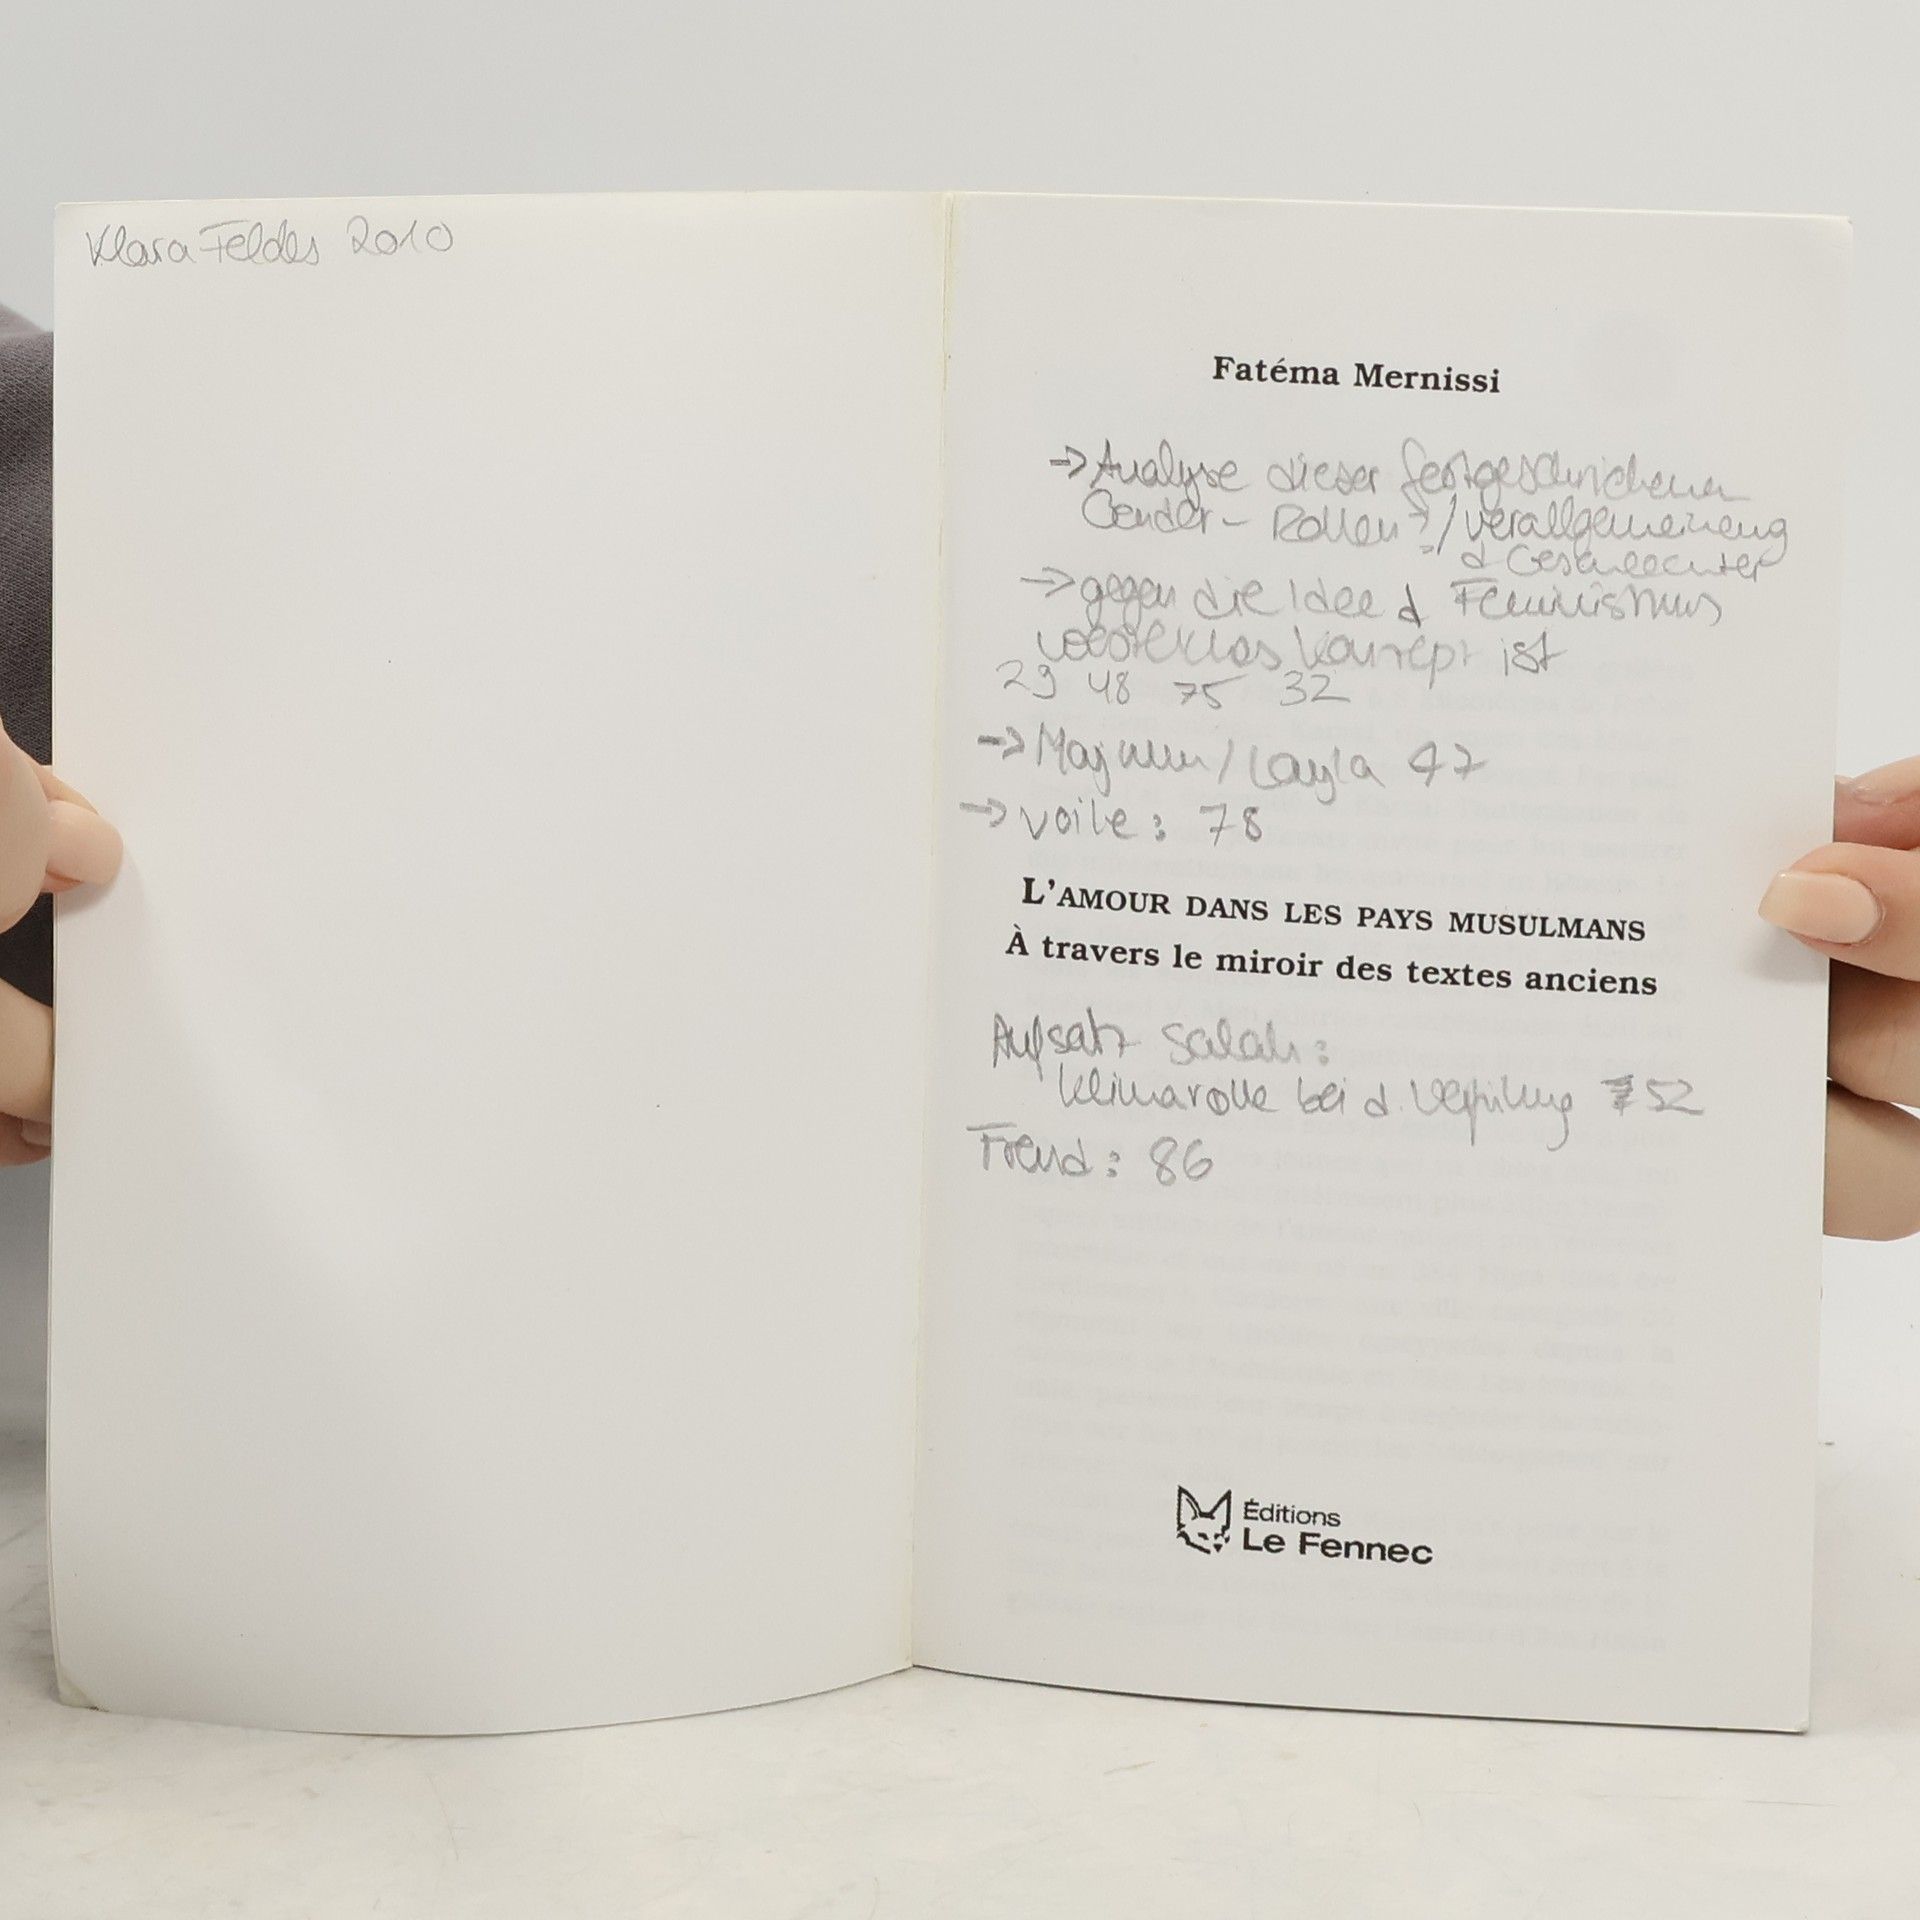 Klara Feldes 2010
Fatéma Mernissi
→ Analyse dieser festgeschriebenen
Gender-Rollen?/Verallgemeinerung
d Geschlechter
→ gegen die Idee d Feminismus
westliches Konzept ist
29 48 75 32
→ Majnun/Layla 47
→ voile: 78
L'AMOUR DANS LES PAYS MUSULMANS
À travers le miroir des textes anciens
Aufsatz Salah:
bei d. 52
Freud: 86
Éditions
Le Fennec